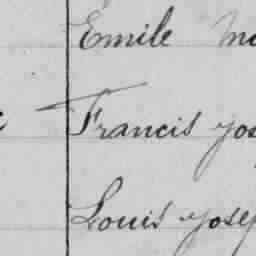 Emile
Francis Jos
Louis Josep